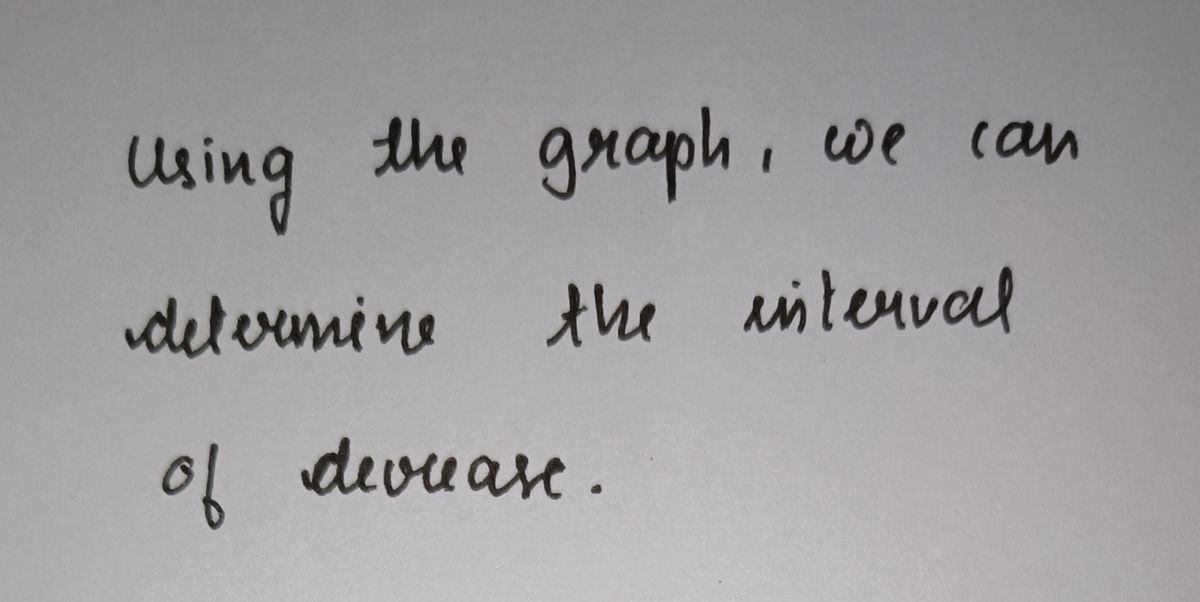 Using the graph, we can
determine the interval
of decrease.